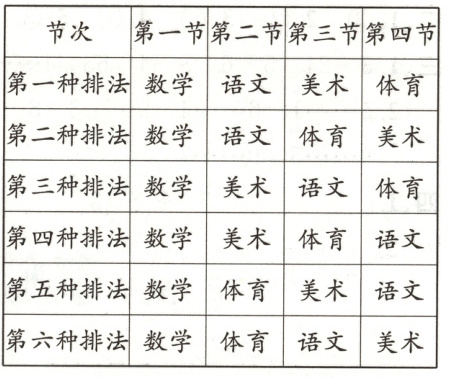 节次 第一节 第二节 第三节 第四节
第一种排法 数学 语文 美术 体育
第二种排法 数学 语文 体育 美术
第三种排法 数学 美术 语文 体育
第四种排法 数学 美术 体育 语文
第五种排法 数学 体育 美术 语文
第六种排法 数学 体育 语文 美术